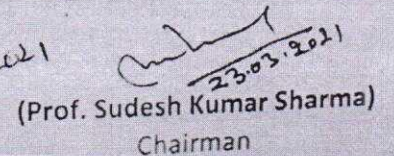 23.03.2021
(Prof. Sudesh Kumar Sharma)
Chairman